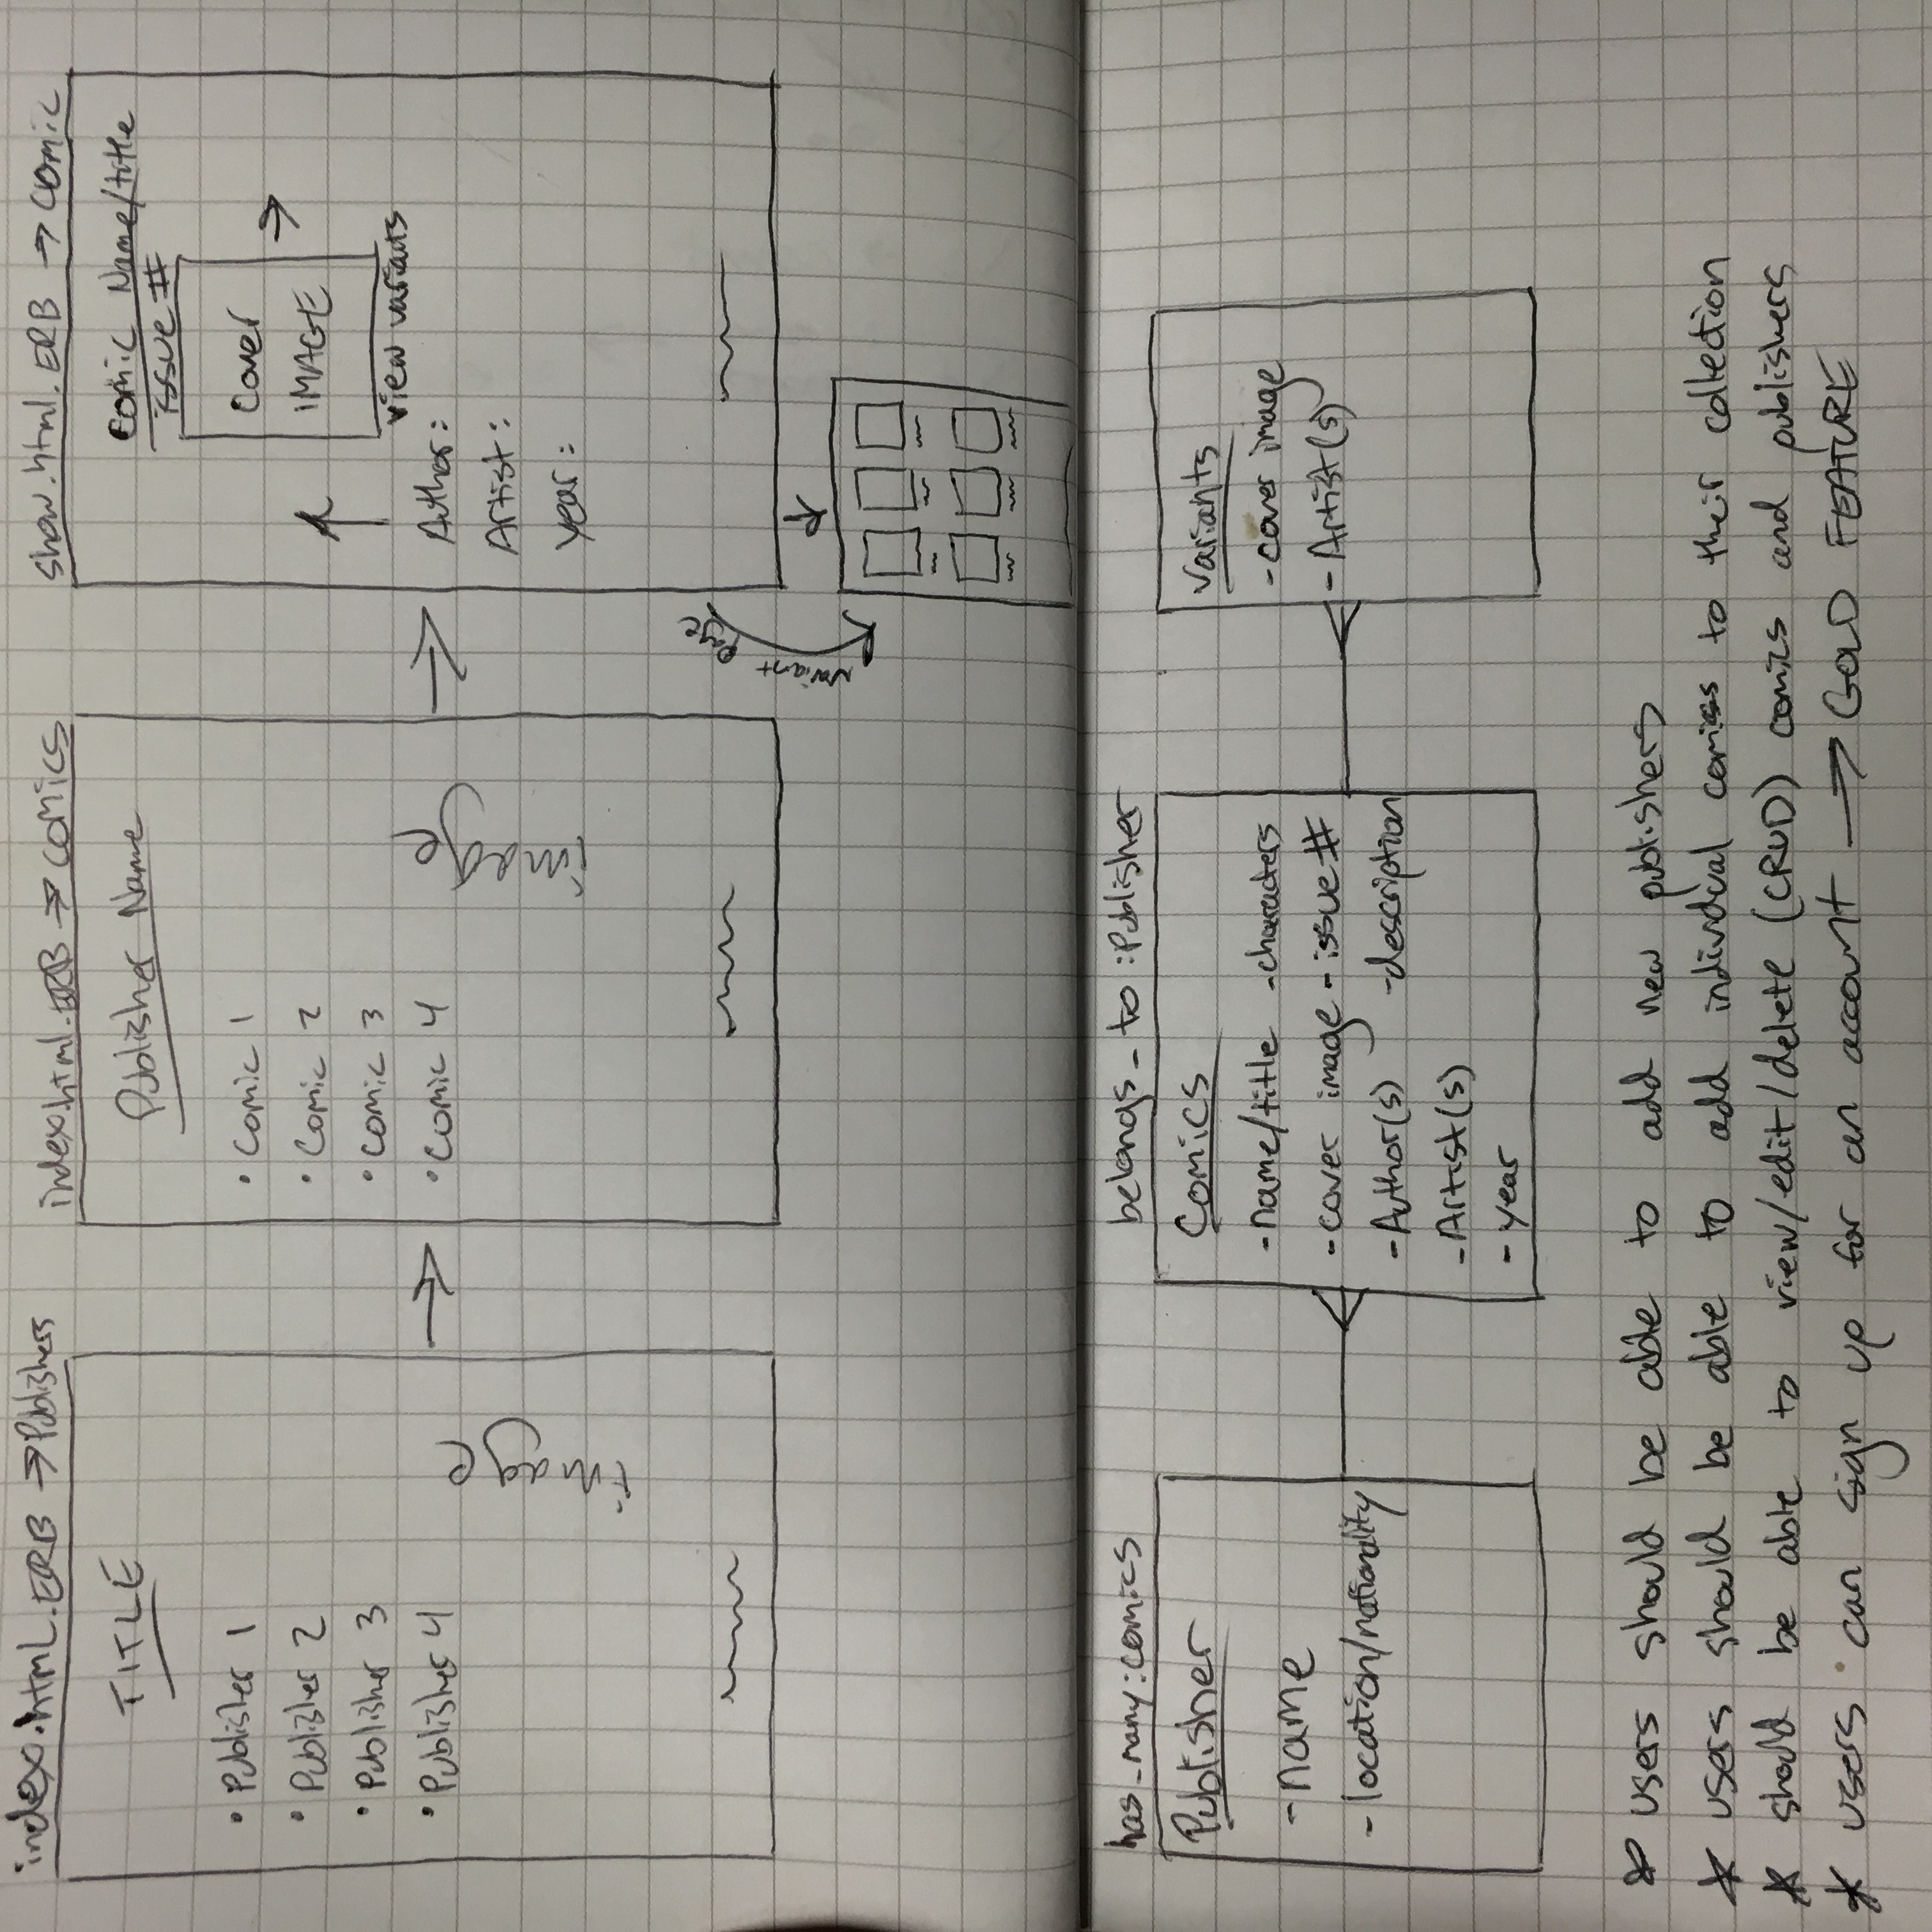 index.html.ERB → Publishers
TITLE
• Publisher 1
• Publisher 2
• Publisher 3
• Publisher 4
image
index.html.ERB → COMICS
Publisher Name
• Comic 1
• Comic 2
• Comic 3
• Comic 4
image
show.html.ERB → Comic
Comic Name/title
issue #
Cover
IMAGE
view variants
Author:
Artist:
year:
Variant Page
has_many:comics
Publisher
- name
- location/nationality
belongs_to :Publisher
Comics
- name/title - characters
- cover image - issue #
- Author(s) - description
- Artist(s)
- year
Variants
- cover image
- Artist(s)
* users should be able to add new publishers
* users should be able to add individual comics to their collection
* should be able to view/edit/delete (CRUD) comics and publishers
* users can sign up for an account → GOLD FEATURE